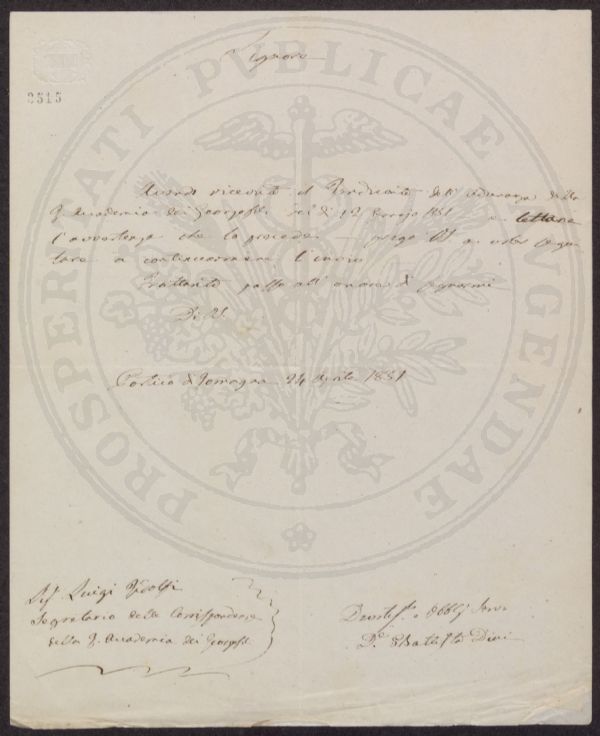 Signore
PROSPERITATI PVBLICAE AVGENDAE
2515
Avendo ricevuto il Rendiconto dell' adunanza della
R. Accademia dei Georgofili del dì 12 1851 e lettane
l'avvertenza che la precede prego VS a voler
a continuarmene l'invio
Frattanto passo all' onore di segnarmi
Di VS.
Portico di Romagna 24 Aprile 1851
Sig. Luigi Ridolfi
Segretario delle Corrispondenze
della R. Accademia dei Georgofili
Devotis. e Obblig. Serv.
D. Battista